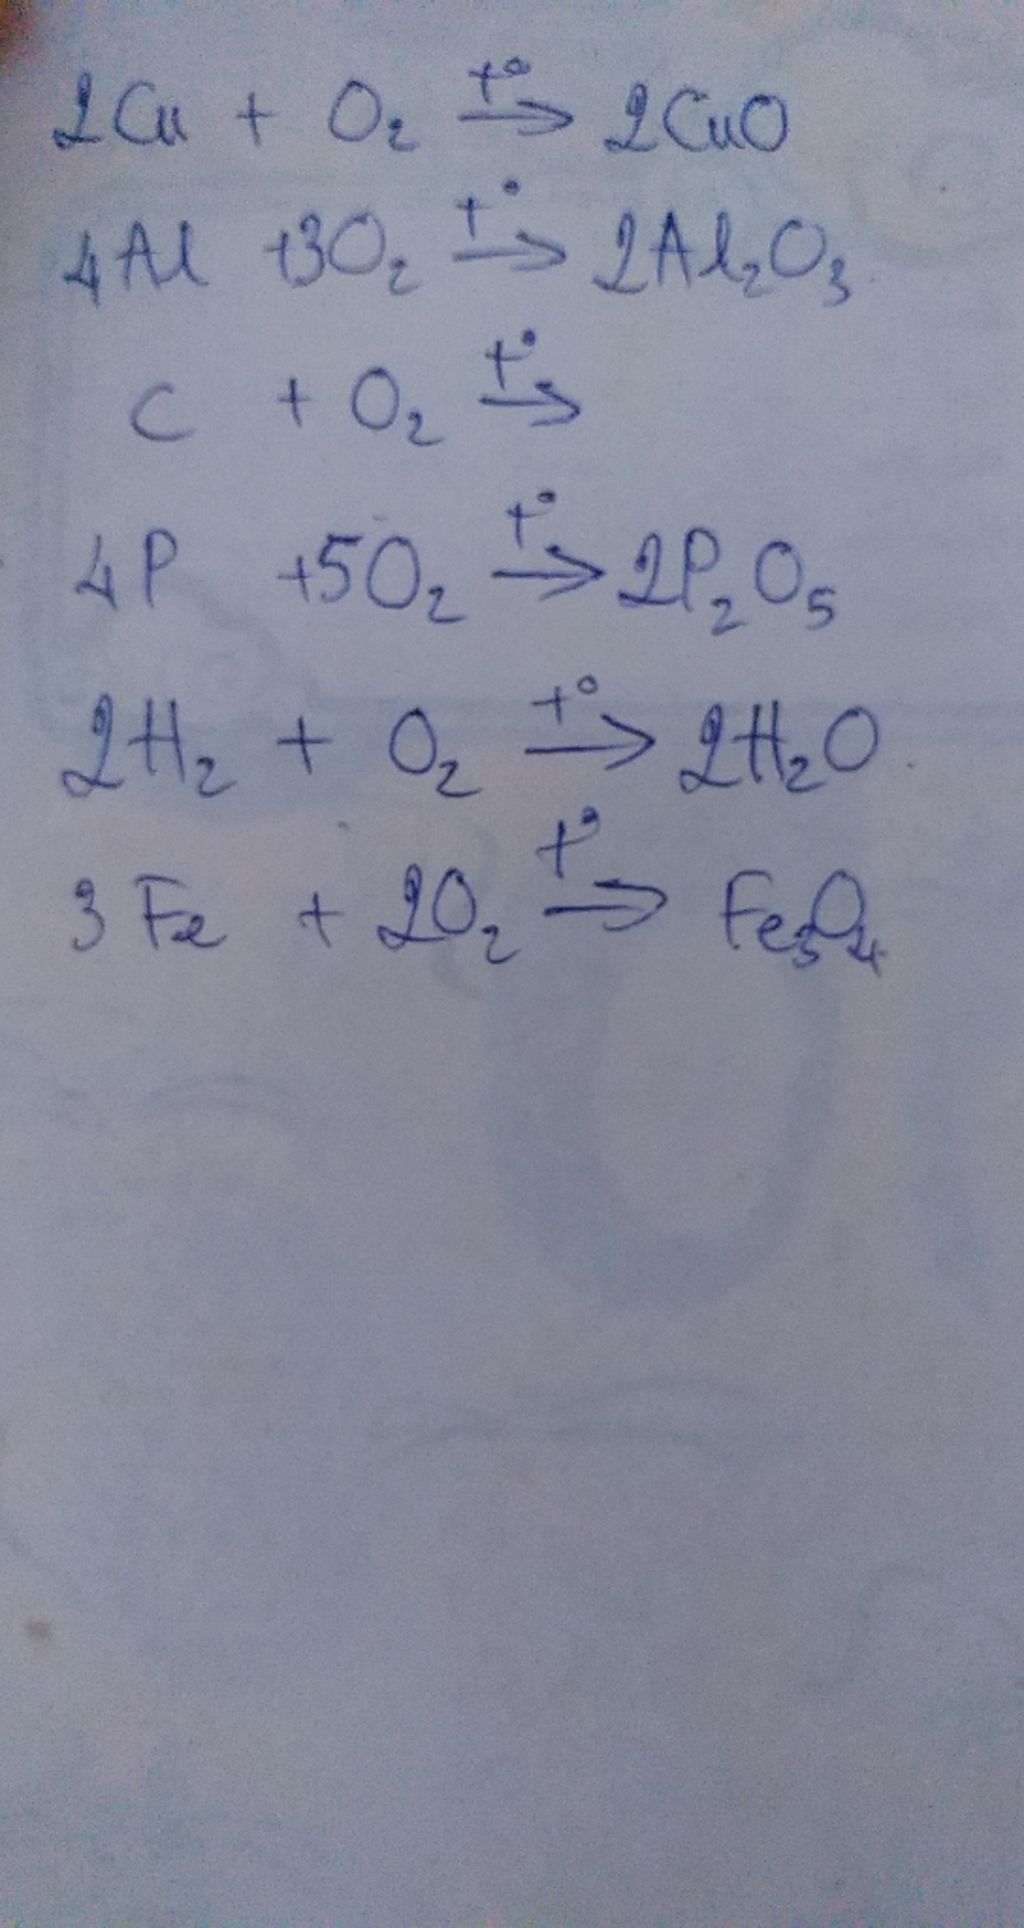 2Cu + O₂ t°→ 2CuO
4Al +3O₂ t°→ 2Al₂O₃
C + O₂ t°→
4P +5O₂ t°→ 2P₂O₅
2H₂ + O₂ t°→ 2H₂O
3Fe + 2O₂ t°→ Fe₃O₄